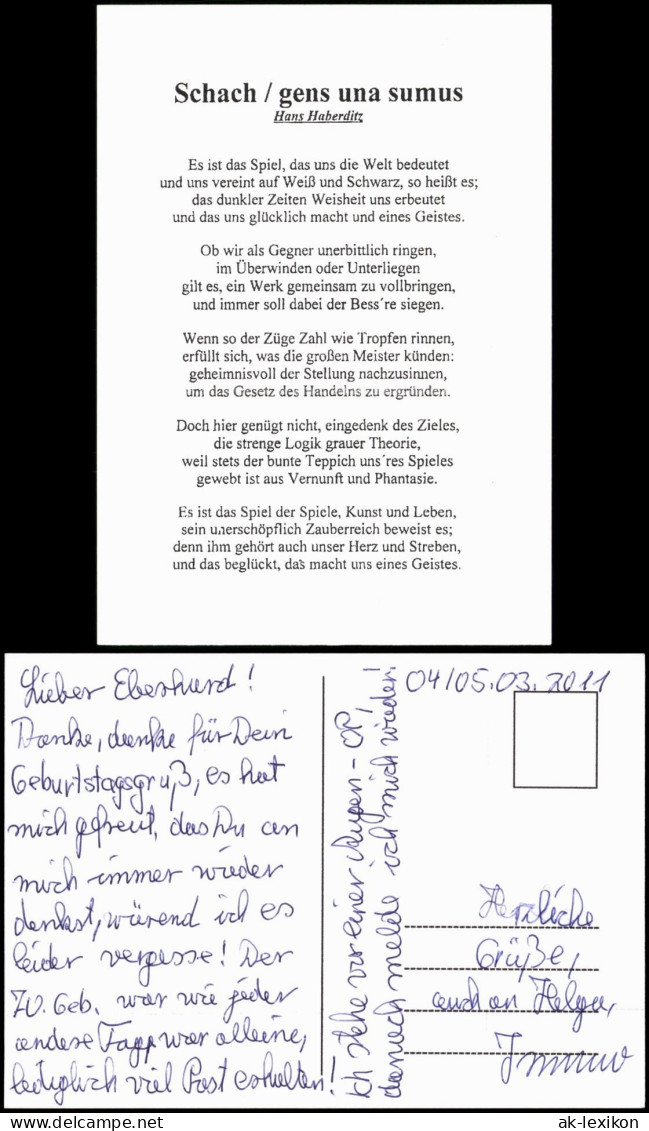 Schach / gens una sumus
Hans Haberditz
Es ist das Spiel, das uns die Welt bedeutet
und uns vereint auf Weiß und Schwarz, so heißt es;
das dunkler Zeiten Weisheit uns erbeutet
und das uns glücklich macht und eines Geistes.
Ob wir als Gegner unerbittlich ringen,
im Überwinden oder Unterliegen
gilt es, ein Werk gemeinsam zu vollbringen,
und immer soll dabei der Bess´re siegen.
Wenn so der Züge Zahl wie Tropfen rinnen,
erfüllt sich, was die großen Meister künden:
geheimnisvoll der Stellung nachzusinnen,
um das Gesetz des Handelns zu ergründen.
Doch hier genügt nicht, eingedenk des Zieles,
die strenge Logik grauer Theorie,
weil stets der bunte Teppich uns´res Spieles
gewebt ist aus Vernunft und Phantasie.
Es ist das Spiel der Spiele, Kunst und Leben,
sein unerschöpflich Zauberreich beweist es;
denn ihm gehört auch unser Herz und Streben,
und das beglückt, das macht uns eines Geistes.
Lieber Eberhard!
Danke, danke für Dein
Geburtstagsgruß, es hat
mich gefreut, das Du an
mich immer wieder
denkst, würend ich es
leider vergesse! Der
70. Geb. war wie jeder
andere Tag, war alleine,
lediglich viel Post erhalten!
Ich stehe vor einer Augen-OP,
danach melde ich mich wieder!
04/05.03.2011
Herzliche
Grüße,
auch an Helga,
www.delcampe.net
ak-lexikon